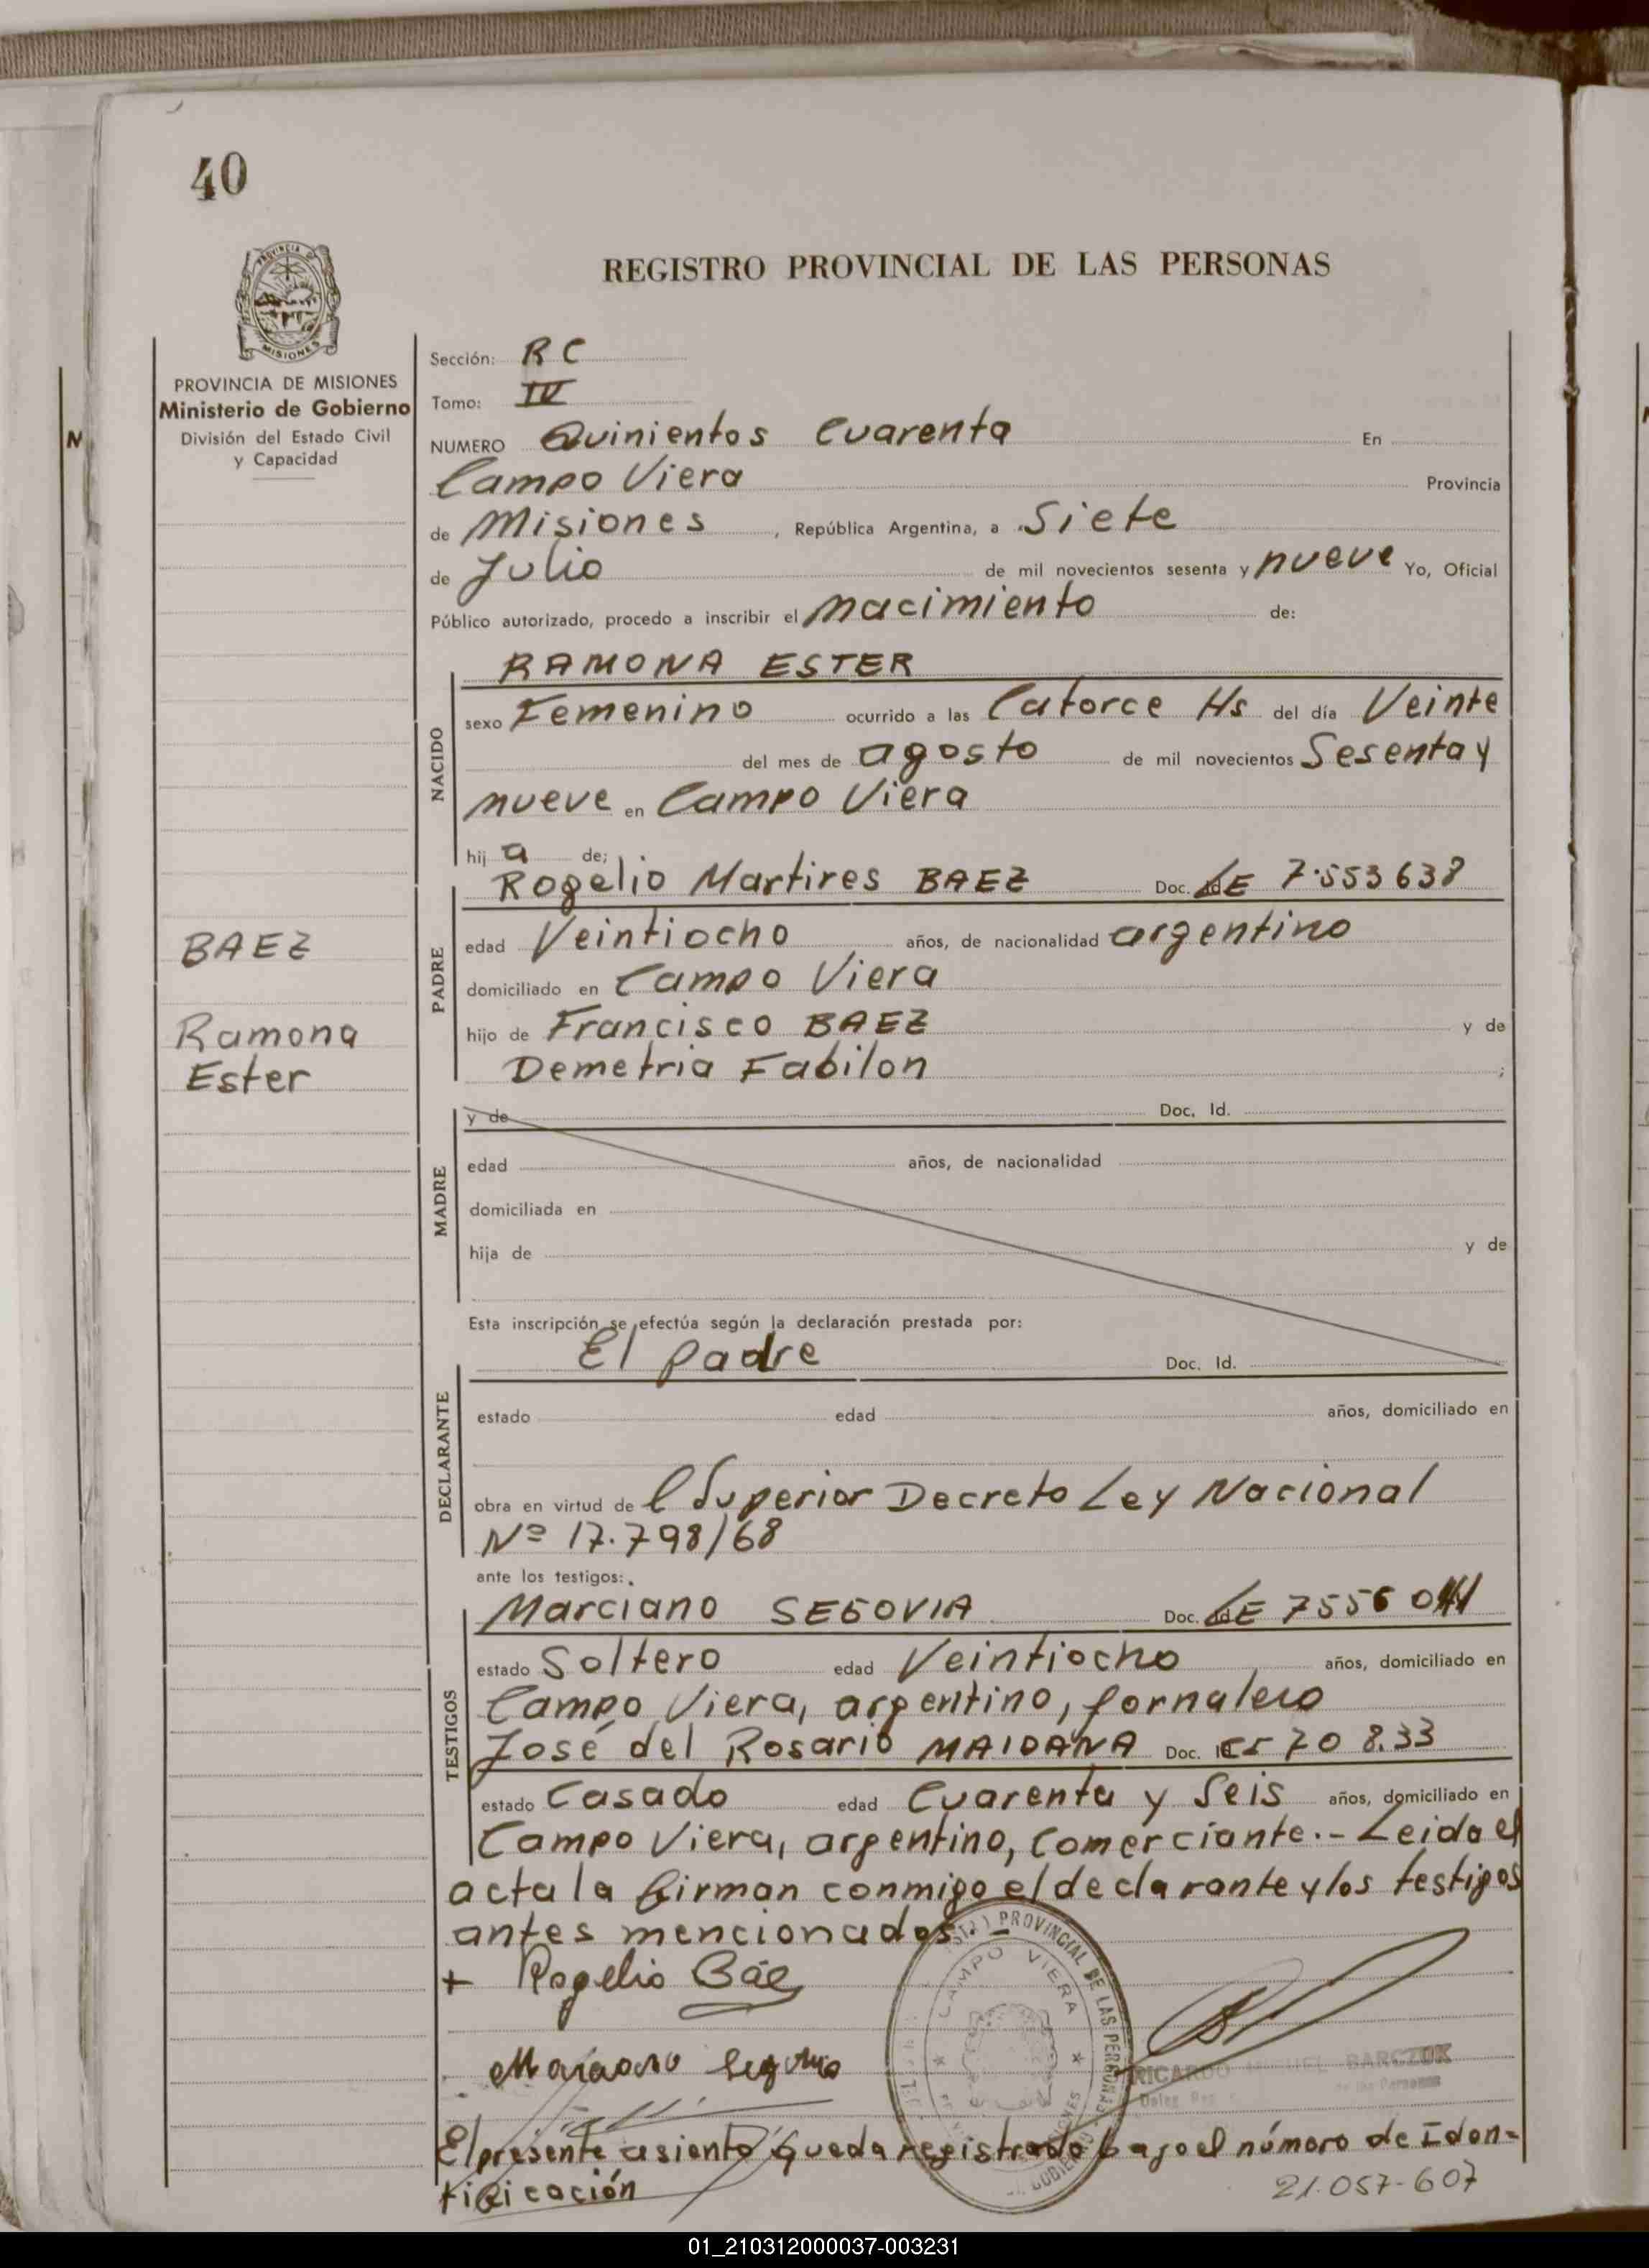 40
REGISTRO PROVINCIAL DE LAS PERSONAS
PROVINCIA DE MISIONES
Ministerio de Gobierno
División del Estado Civil
y Capacidad
Sección: RC
Tomo: IV
NUMERO Quinientos Cuarenta En
Campo Viera Provincia
de Misiones, República Argentina, a Siete
de Julio de mil novecientos sesenta y nueve Yo, Oficial
Público autorizado, procedo a inscribir el nacimiento de:
NACIDO
RAMONA ESTER
sexo Femenino ocurrido a las Catorce Hs del día Veinte
del mes de agosto de mil novecientos Sesenta y
nueve en Campo Viera
hij a de;
BAEZ
Ramona
Ester
PADRE
Rogelio Martires BAEZ Doc. LE 7.553638
edad Veintiocho años, de nacionalidad argentino
domiciliado en Campo Viera
hijo de Francisco BAEZ y de
Demetria Fabilon ;
MADRE
y de Doc. Id.
edad años, de nacionalidad
domiciliada en
hija de y de
Esta inscripción se efectúa según la declaración prestada por:
DECLARANTE
El padre Doc. Id.
estado edad años, domiciliado en
obra en virtud de l Superior Decreto Ley Nacional
Nº 17.798/68
ante los testigos:
TESTIGOS
Marciano SEGOVIA Doc. LE
estado Soltero edad Veintiocho años, domiciliado en
Campo Viera, argentino, jornalero
José del Rosario MAIDANA Doc. 570 8.33
estado Casado edad Cuarenta y Seis años, domiciliado en
Campo Viera, argentino, Comerciante.- Leida el
acta la firman conmigo el declarante y los testigos
antes mencionados.-
+ Rogelio Báe
Marciano Segovia
PROVINCIAL DE LAS PERSONAS
CAMPO VIERA
RICARDO MIGUEL BARCZUK
El presente asiento queda registrado bajo el número de Iden-
tificación 21.057-607
01_210312000037-003231